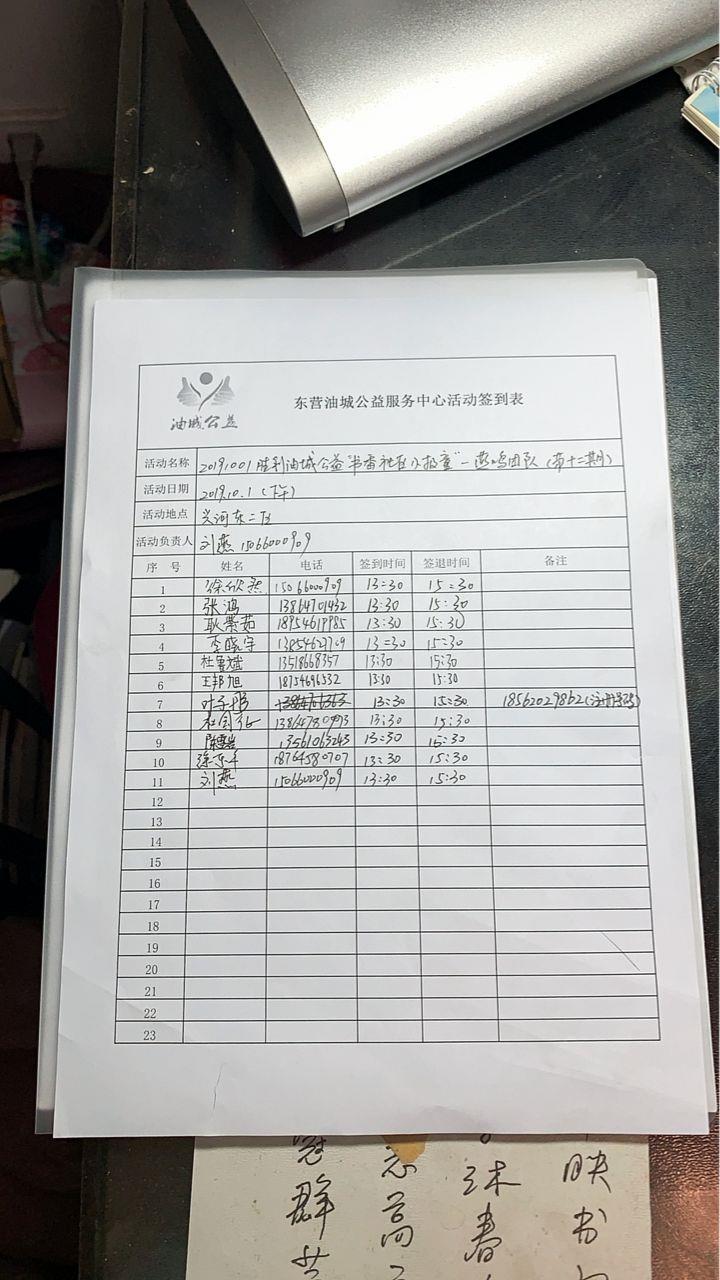 油城公益
东营油城公益服务中心活动签到表
活动名称 20191001胜利油城公益"书香社区小报童"-燕鸣团队（第十二期）
活动日期 2019.10.1（下午）
活动地点 兴河东二区
活动负责人 刘燕 15066000909
序 号 姓名 电话 签到时间 签退时间 备注
1 徐欣燕 15066000909 13:30 15:30
2 张鸿 13864701432 13:30 15:30
3 耿荣茹 18954619985 13:30 15:30
4 李晓宇 13:30 15:30
5 杜鲁斌 13518668357 13:30 15:30
6 王邦旭 18754696532 13:30 15:30
7 13:30 15:30 18562029862(注册号码)
8 13864730993 13:30 15:30
9 13561063243 13:30 15:30
10 18764580707 13:30 15:30
11 刘燕 15066000909 13:30 15:30
12
13
14
15
16
17
18
19
20
21
22
23
冠 志 沫 映
群 高 春 书